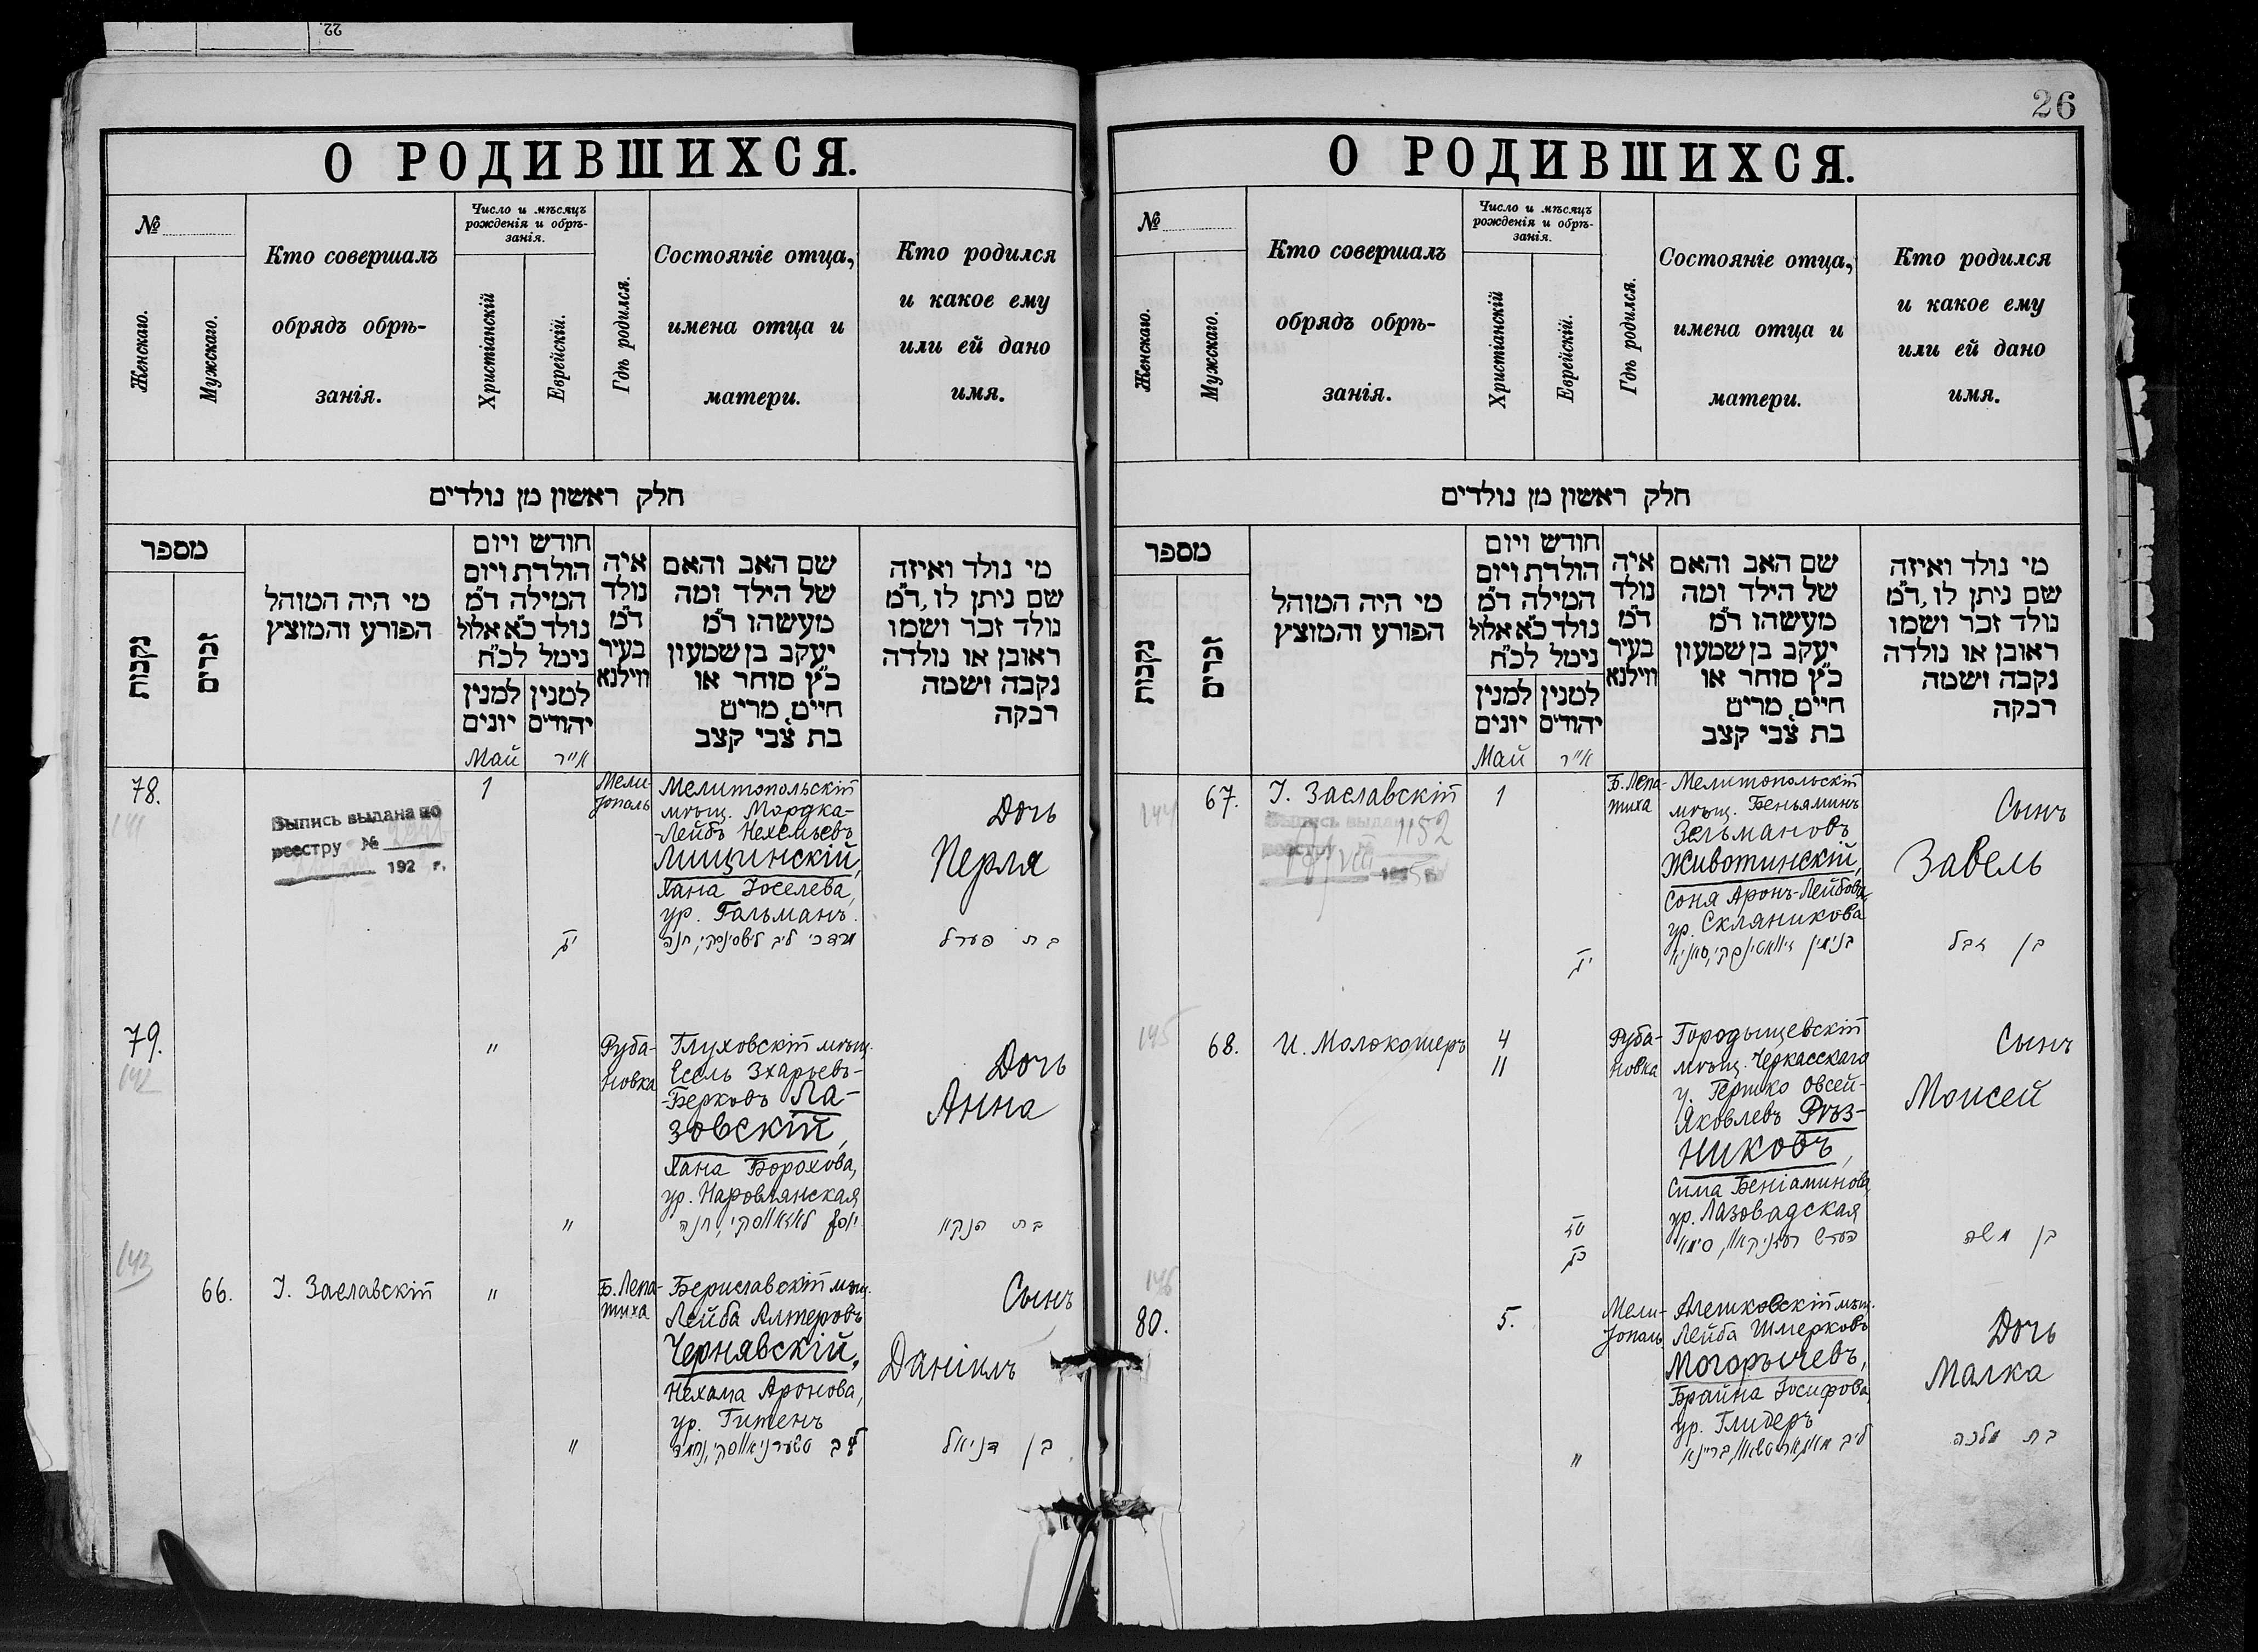 22.
26
О РОДИВШИХСЯ.
№
Женскаго.
Мужскаго.
Кто совершалъ
обрядъ обрѣ-
занія.
Число и мѣсяцъ
рожденія и обрѣ-
занія.
Христіанскій
Еврейскій.
Гдѣ родился.
Состояніе отца,
имена отца и
матери.
Кто родился
и какое ему
или ей дано
имя.
חלק ראשון מן נולדים
מספר
נקבות
זכרים
מי היה המוהל
הפורע והמוצץ
חודש ויום
הולדת ויום
המילה ד"מ
נולד כ"א אלול
נימל לכ"ח
למנין
יונים
למנין
יהודים
איה
נולד
ד"מ
בעיר
ווילנא
שם האב והאם
של הילד ומה
מעשהו ד"מ
יעקב בן שמעון
כ"ץ סוחר או
חייט, מרים
בת צבי קצב
מי נולד ואיזה
שם ניתן לו, ד"מ
נולד זכר ושמו
ראובן או נולדה
נקבה ושמה
רבקה
Май
אייר
78.
141
Выпись выдана по
реестру №
192 г.
1
Мели-
тополь
Мелитопольскій
мѣщ. Мордка-
-Лейбъ Нехемьевъ
Лищинскій,
Хана Іоселева,
ур. Гальманъ.
Дочь
Перля
בת פערל
79.
142
"
Руба-
новка
Глуховскій мѣщ.
Есель Зхарьевъ-
-Берковъ Ла-
зовскій,
Хана Борохова,
ур. Наровлянская
Дочь
Анна
"
143
66.
І. Заславскій
"
Б. Лепа-
тиха
Бериславскій мѣщ.
Лейба Алтеровъ
Чернявскій,
Нехама Аронова,
ур. Гитенъ
Сынъ
Даніилъ
"
בן דניאל
О РОДИВШИХСЯ.
№
Женскаго.
Мужскаго.
Кто совершалъ
обрядъ обрѣ-
занія.
Число и мѣсяцъ
рожденія и обрѣ-
занія.
Христіанскій
Еврейскій.
Гдѣ родился.
Состояніе отца,
имена отца и
матери.
Кто родился
и какое ему
или ей дано
имя.
חלק ראשון מן נולדים
מספר
נקבות
זכרים
מי היה המוהל
הפורע והמוצץ
חודש ויום
הולדת ויום
המילה ד"מ
נולד כ"א אלול
נימל לכ"ח
למנין
יונים
למנין
יהודים
איה
נולד
ד"מ
בעיר
ווילנא
שם האב והאם
של הילד ומה
מעשהו ד"מ
יעקב בן שמעון
כ"ץ סוחר או
חייט, מרים
בת צבי קצב
מי נולד ואיזה
שם ניתן לו, ד"מ
נולד זכר ושמו
ראובן או נולדה
נקבה ושמה
רבקה
Май
אייר
144
67.
І. Заславскій
1152
1
Б. Лепа-
тиха
Мелитопольскій
мѣщ. Беньяминъ
Зельмановъ
Животинскій,
Соня Аронъ-Лейбова,
ур. Скляникова
Сынъ
Завель
בן זבל
145
68.
И. Молокошеръ
4
11
Руба-
новка
Городищевскій
мѣщ. Черкасскаго
у. Гершко Овсей-
Яковлевъ Рѣз-
никовъ,
Сима Беніаминова,
ур. Лазовадская
Сынъ
Моисей
בן משה
146
80.
5.
Мели-
тополь
Алешковскій мѣщ.
Лейба Шмерковъ
Могорычевъ,
Брайна Іосифова,
ур. Глидеръ
Дочь
Малка
"
בת מלכה